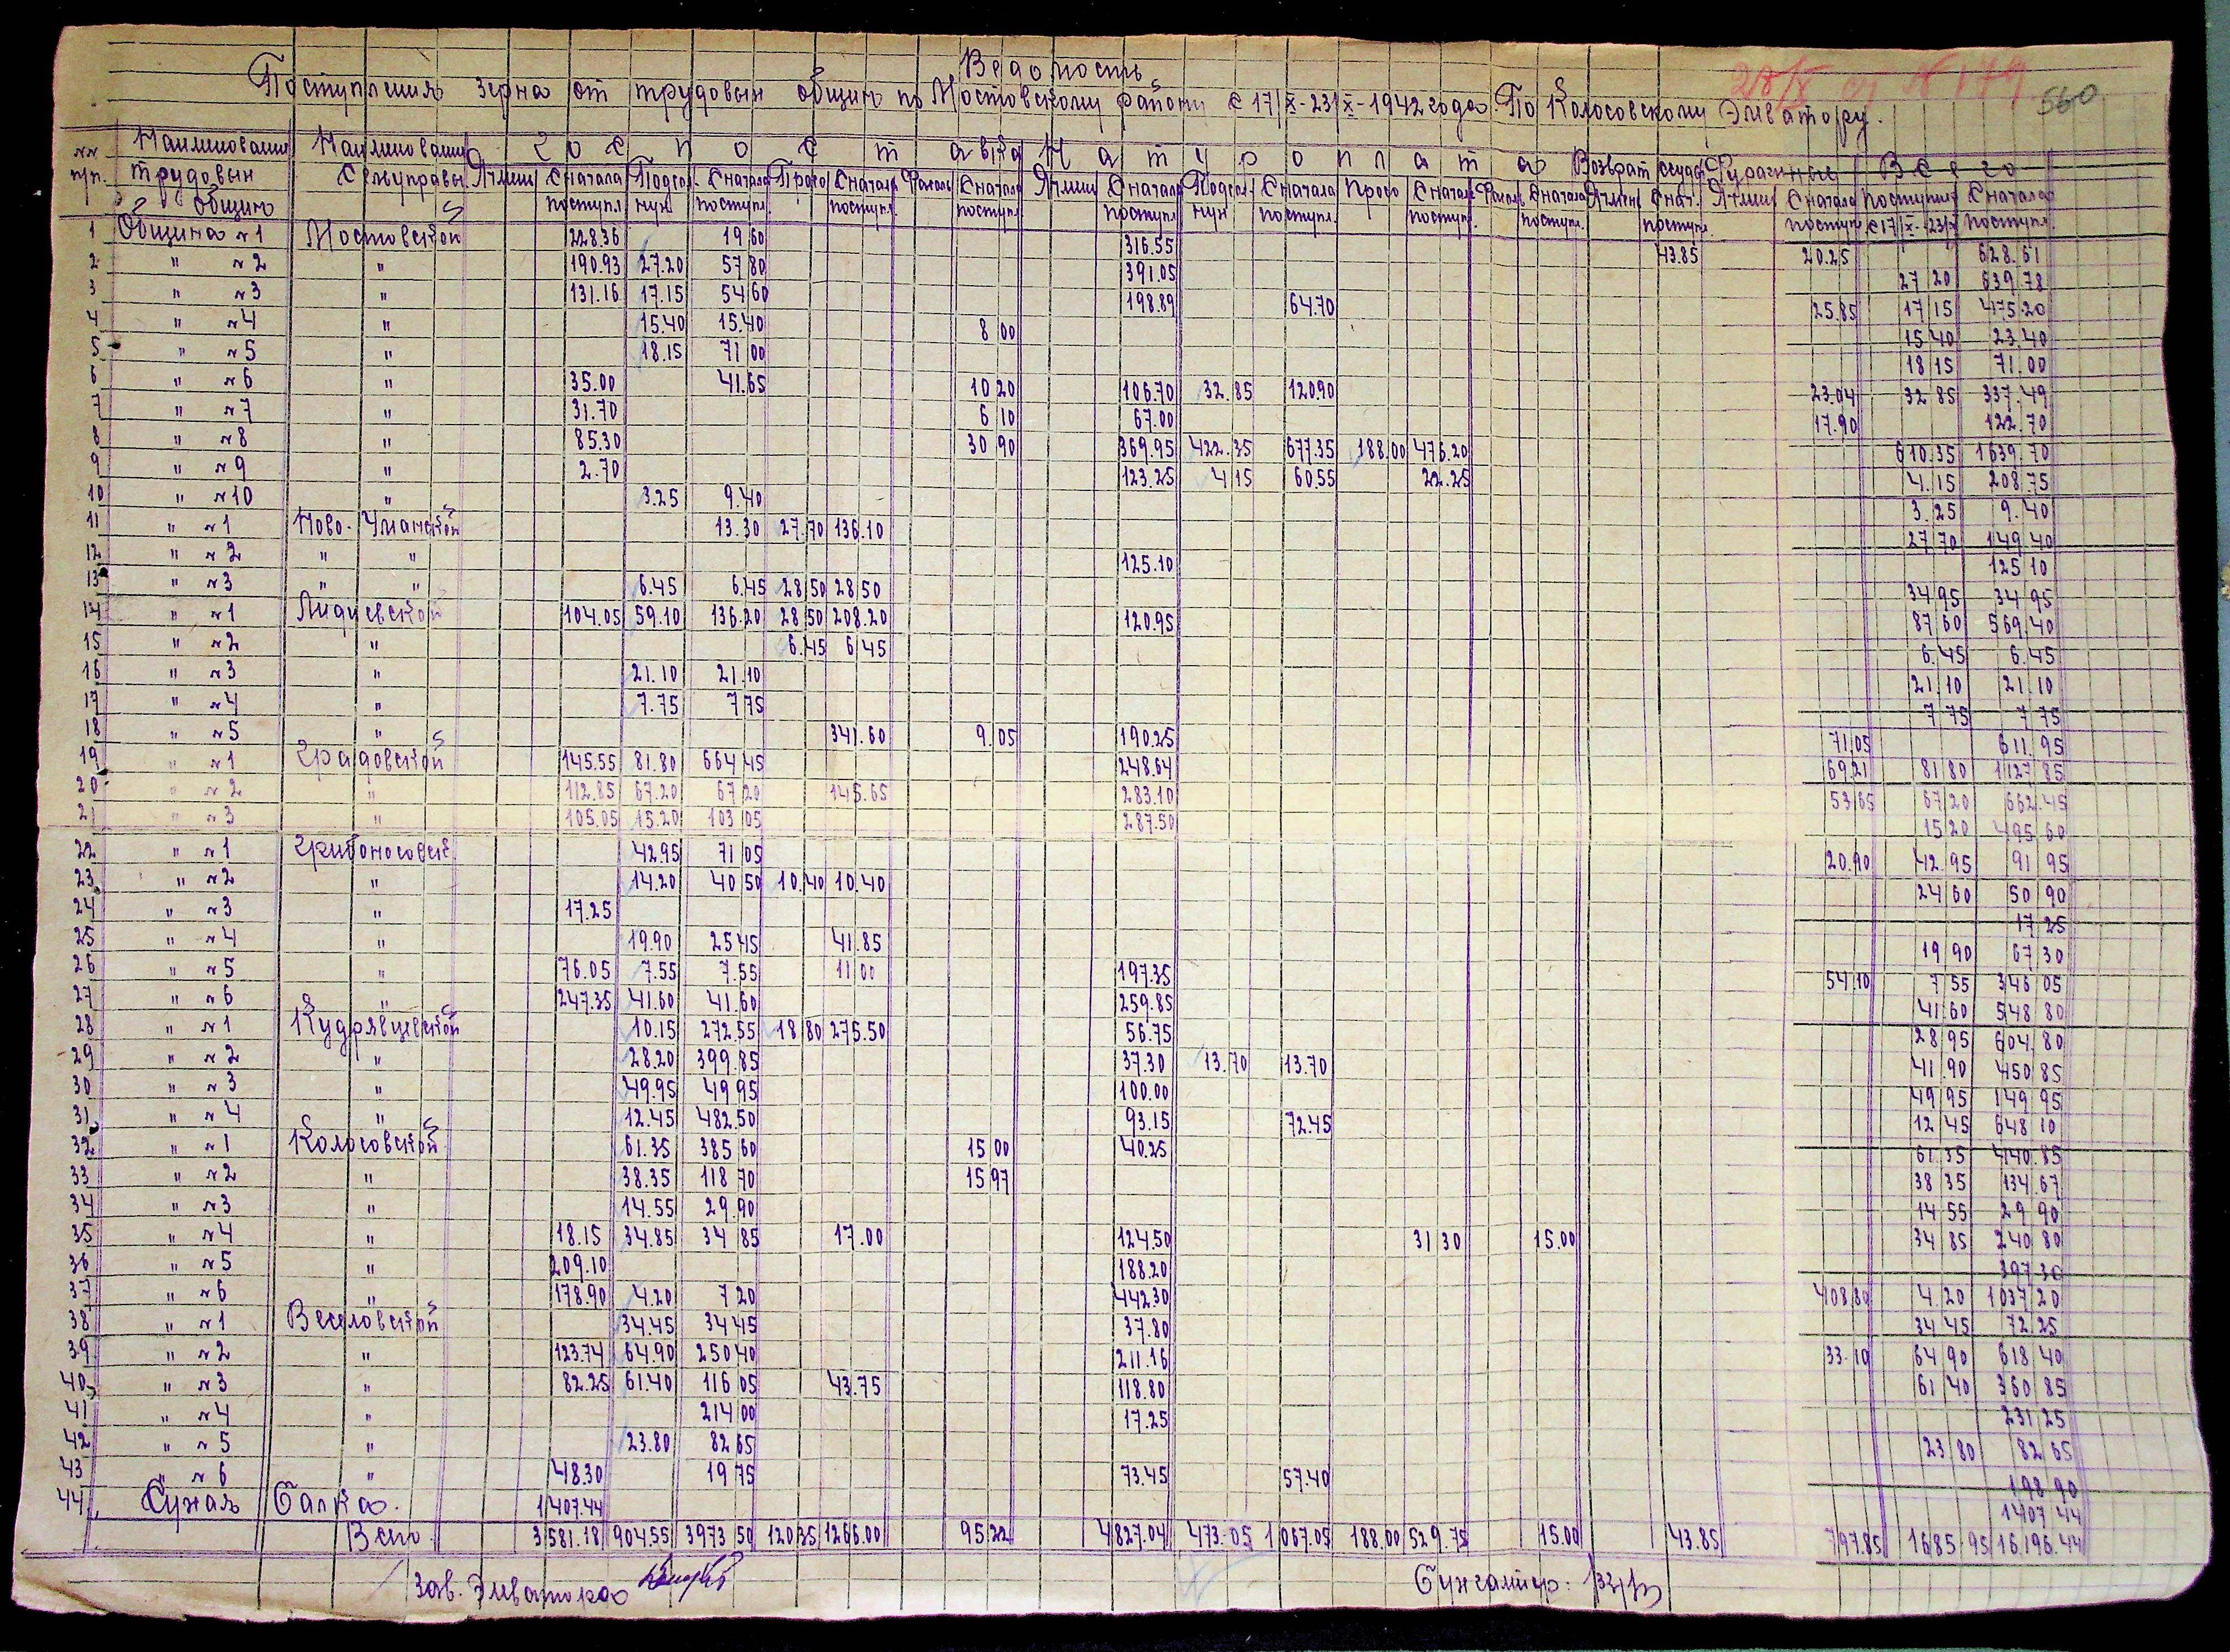 Ведомость
Поступления зерна от трудовых общин по Мостовскому району с 17/X-23/X-1942 года. По Колосовскому Элеватору.
28/X № 179 560
№№ Наименования Наименования Госпоставка Натуроплата Возврат ссуды Фуражные Всего
п/п. трудовых Сельуправы Ячмень Сначала Подсол- Сначала Просо Сначала Фасоль Сначала Ячмень Сначала Подсол- Сначала Просо Сначала Фасоль Сначала Ячмень Снач. Ячмень Сначала Поступило Сначала
общин поступл. нух поступл. поступл. поступл. поступл. нух поступл. поступл. поступл. поступл. поступл. с 17/X-23/X поступл.
1 Община №1 Мостовской 228.36 19.60 316.55 43.85 20.25 628.61
2 " №2 " 190.93 27.20 57.80 391.05 27.20 639.78
3 " №3 " 131.16 17.15 54.60 198.89 64.70 25.85 17.15 475.20
4 " №4 " 15.40 15.40 8.00 15.40 23.40
5 " №5 " 18.15 71.00 18.15 71.00
6 " №6 " 35.00 41.65 10.20 106.70 32.85 120.90 23.04 32.85 337.49
7 " №7 " 31.70 6.10 67.00 17.90 122.70
8 " №8 " 85.30 30.90 369.95 422.35 677.35 188.00 476.20 610.35 1639.70
9 " №9 " 2.70 123.25 4.15 60.55 22.25 4.15 208.75
10 " №10 " 3.25 9.40 3.25 9.40
11 " №1 Ново-Уманской 13.30 27.70 136.10 27.70 149.40
12 " №2 " " 125.10 125.10
13 " №3 " " 6.45 6.45 28.50 28.50 34.95 34.95
14 " №1 Лидиевской 104.05 59.10 136.20 28.50 208.20 120.95 87.60 569.40
15 " №2 " 6.45 6.45 6.45 6.45
16 " №3 " 21.10 21.10 21.10 21.10
17 " №4 " 7.75 7.75 7.75 7.75
18 " №5 " 341.60 9.05 190.25 71.05 611.95
19 " №1 Градовской 145.55 81.80 664.45 248.64 69.21 81.80 1127.85
20 " №2 " 112.85 67.20 67.20 145.65 283.10 53.65 67.20 662.45
21 " №3 " 105.05 15.20 103.05 287.50 15.20 495.60
22 " №1 Грибоносовск. 42.95 71.05 20.90 42.95 91.95
23 " №2 " 14.20 40.50 10.40 10.40 24.60 50.90
24 " №3 " 17.25 17.25
25 " №4 " 19.90 25.45 41.85 19.90 67.30
26 " №5 " 76.05 7.55 7.55 11.00 197.35 54.10 7.55 346.05
27 " №6 " 247.35 41.60 41.60 259.85 41.60 548.80
28 " №1 Кудрявцевской 10.15 272.55 18.80 275.50 56.75 28.95 604.80
29 " №2 " 28.20 399.85 37.30 13.70 13.70 41.90 450.85
30 " №3 " 49.95 49.95 100.00 49.95 149.95
31 " №4 " 12.45 482.50 93.15 72.45 12.45 648.10
32 " №1 Колосовской 61.35 385.60 15.00 40.25 61.35 440.85
33 " №2 " 38.35 118.70 15.97 38.35 134.67
34 " №3 " 14.55 29.90 14.55 29.90
35 " №4 " 18.15 34.85 34.85 17.00 124.50 31.30 15.00 34.85 240.80
36 " №5 " 209.10 188.20 397.30
37 " №6 " 178.90 4.20 7.20 442.30 408.80 4.20 1037.20
38 " №1 Веселовской 34.45 34.45 37.80 34.45 72.25
39 " №2 " 123.74 64.90 250.40 211.16 33.10 64.90 618.40
40 " №3 " 82.25 61.40 116.05 43.75 118.80 61.40 360.85
41 " №4 " 214.00 17.25 231.25
42 " №5 " 23.80 82.65 23.80 82.65
43 " №6 " 48.30 19.75 73.45 57.40 198.90
44 Сухая Балка. 1407.44 1407.44
Всего. 3581.18 904.55 3973.50 120.35 1266.00 95.22 4827.04 473.05 1067.05 188.00 529.75 15.00 43.85 797.85 1685.95 16.196.44
Зав. Элеватора Бухгалтер: